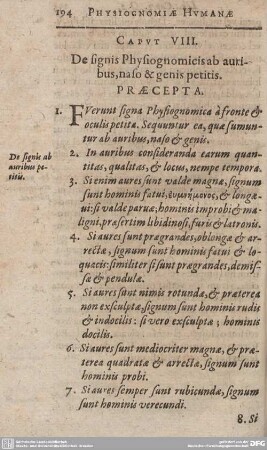 194 PHYSIOGNOMIÆ HVMANÆ
CAPVT VIII.
De signis Physiognomicis ab auri-
bus, naso & genis petitis.
PRÆCEPTA.
1. FVerunt signa Physiognomica à fronte &
oculis petita. Sequuntur ea, quæ sumun-
tur ab auribus, naso & genis.
De signis ab
auribus pe-
titis.
2. In auribus consideranda earum quan-
titas, qualitas, & locus, nempe tempora.
3. Si enim aures sunt valde magnæ, signum
sunt hominis fatui, & longæ-
ui: si valde paruæ, hominis improbi & ma-
ligni, præsertim libidinosi, furis & latronis.
4. Si aures sunt prægrandes, oblongæ & ar-
rectæ, signum sunt hominis fatui & lo-
quacis: similiter si sunt prægrandes, demis-
sæ & pendulæ.
5. Si aures sunt nimis rotundæ, & præterea
non exsculptæ, signum sunt hominis rudis
& indocilis: si vero exsculptæ; hominis
docilis.
6. Si aures sunt mediocriter magnæ, & præ-
terea quadratæ & arrectæ, signum sunt
hominis probi.
7. Si aures semper sunt rubicundæ, signum
sunt hominis verecundi.
8. Si
DFG